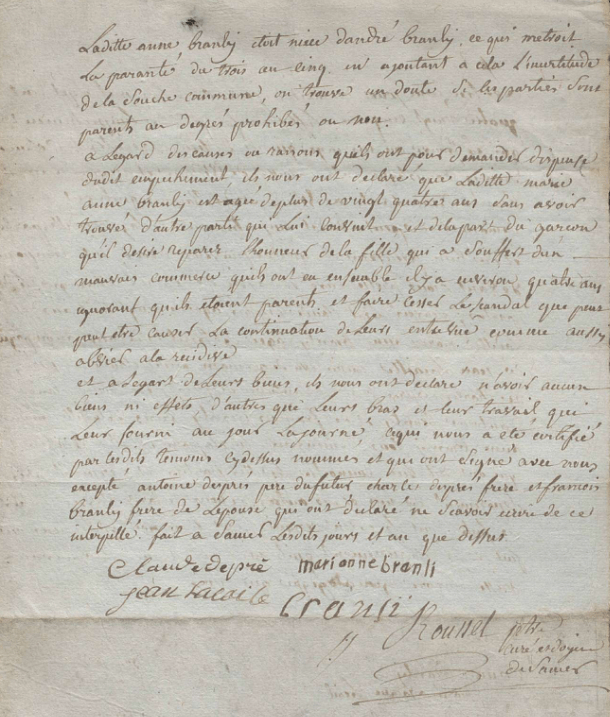 Laditte anne branly etoit niece dandré branly, ce qui metroit
La paranté du trois au cinq. en ajoutant a cela L'incertitude
de la souche commune, on trouve un doute si les parties sont
parents au degrés prohibés ou non.
a Legard des causes ou raisons quils ont pour demander dispense
dudit empechement, ils nous ont declaré que Laditte marie
anne branly est agée deplus de vingt quatre ans sans avoir
trouvé d'autre parti qui Lui convint et delapart du garcon
qu'il desire reparer l'honneur de la fille qui a souffert dun
mauvais commerce quils ont eu ensemble il y a environ quatre ans
ignorant quils etoient parents et faire cesser Lescandal que peut
peut etre causer La continuation de Leurs entrevüe comme aussy
obvier a la recidive
et a Legart de Leurs biens, ils nous ont declaré n'avoir aucun
biens ni effets d'autres que Leurs bras et leur travail qui
Leur fourni au jour Lajourné, ce qui nous a eté certifié
par lesdits temoins cydessus nommés et qui ont signé avec nous
excepté antoine deprés pere dufutur charle deprés frere et francois
branly frere de Lepouse qui ont déclaré ne scavoir ecrire de ce
interpellé. fait a Samer Lesdits jours et an que dessus.
Claude depré marionnebranli
jean
branli
Roussel ptre
curé et doyen
de Samer